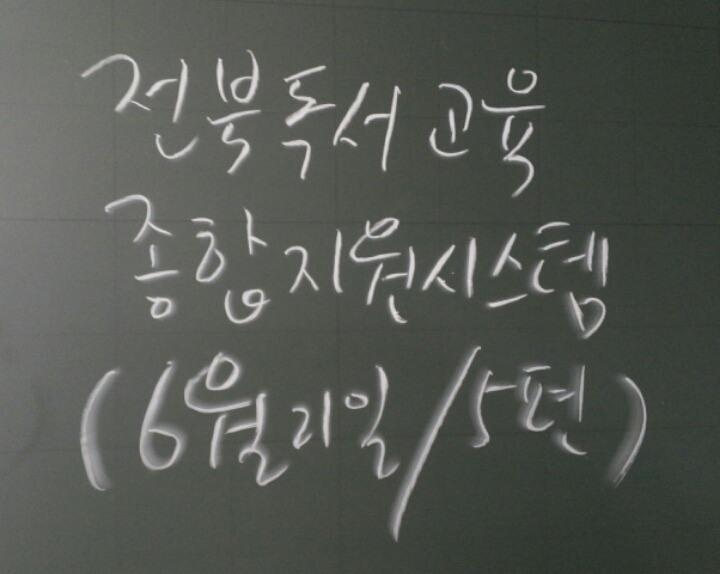 전북독서교육
종합지원시스템
(6월21일/5편)